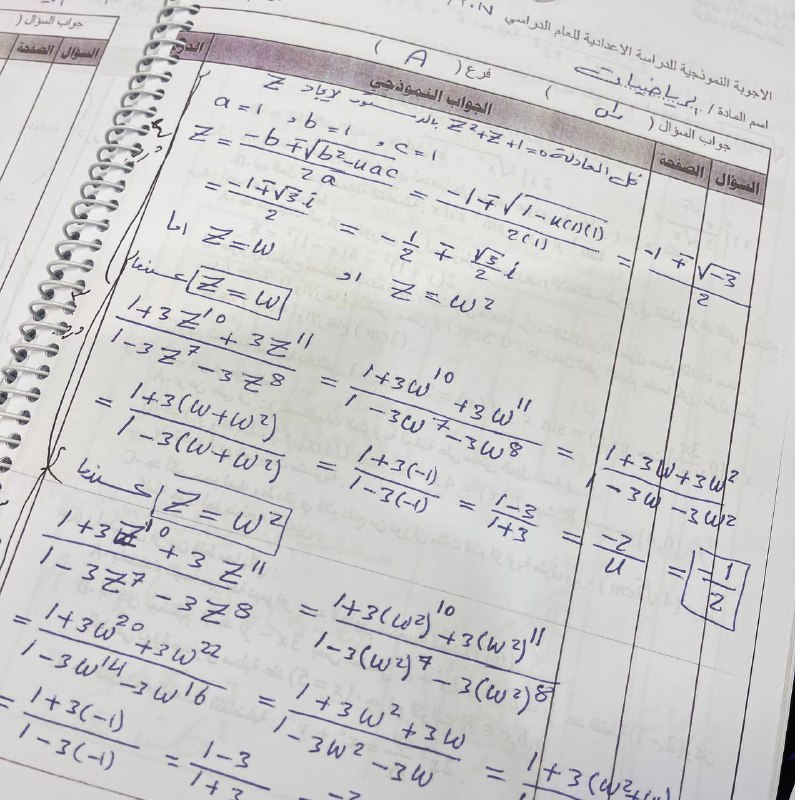 الاجوبة النموذجية للدراسة الاعدادية للعام الدراسي
اسم المادة / الرياضيات
جواب السؤال ( ) فرع ( A )
السؤال الصفحة الجواب النموذجي
نحل المعادلة Z²+Z+1=0 بالدستور لإيجاد Z
a=1 , b=1 , c=1
Z = (-b ∓ √(b²-4ac))/2a = (-1 ∓ √(1-4(1)(1)))/2(1) = (-1 ∓ √-3)/2
= (-1 ∓ √3 i)/2 = -1/2 ∓ √3/2 i
اما Z=ω او Z=ω²
عندما Z=ω
(1+3Z¹⁰+3Z¹¹)/(1-3Z⁷-3Z⁸) = (1+3ω¹⁰+3ω¹¹)/(1-3ω⁷-3ω⁸) = (1+3ω+3ω²)/(1-3ω-3ω²)
= (1+3(ω+ω²))/(1-3(ω+ω²)) = (1+3(-1))/(1-3(-1)) = (1-3)/(1+3) = -2/4 = -1/2
عندما Z=ω²
(1+3Z¹⁰+3Z¹¹)/(1-3Z⁷-3Z⁸) = (1+3(ω²)¹⁰+3(ω²)¹¹)/(1-3(ω²)⁷-3(ω²)⁸)
= (1+3ω²⁰+3ω²²)/(1-3ω¹⁴-3ω¹⁶) = (1+3ω²+3ω)/(1-3ω²-3ω) = 1+3(ω²+ω)
= (1+3(-1))/(1-3(-1)) = (1-3)/(1+3) = -2
جواب السؤال (
السؤال الصفحة